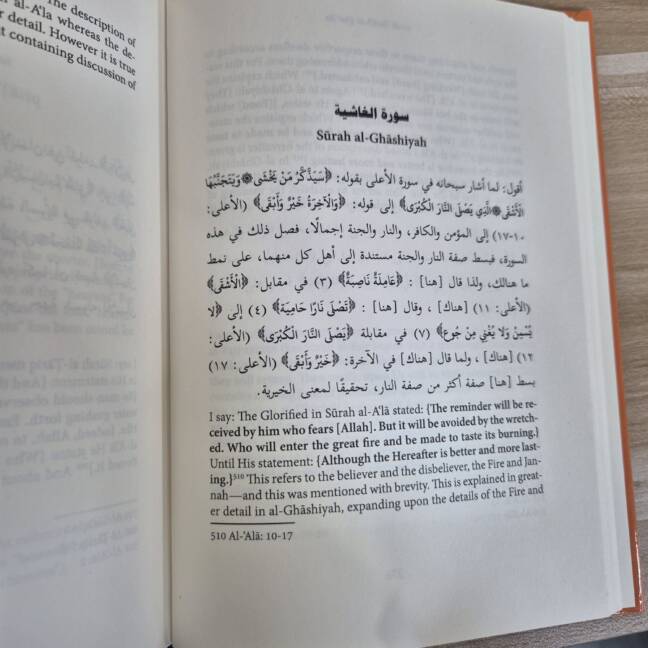 The description of
al-A'la whereas the de-
r detail. However it is true
t containing discussion of
سورة الغاشية
Sūrah al-Ghāshiyah
أقول: لما أشار سبحانه في سورة الأعلى بقوله: ﴿سَيَذَّكَّرُ مَن يَخْشَى ۞ وَيَتَجَنَّبُهَا
الْأَشْقَى ۞ الَّذِي يَصْلَى النَّارَ الْكُبْرَى﴾ إلى قوله: ﴿وَالْآخِرَةُ خَيْرٌ وَأَبْقَى﴾ (الأعلى:
١٠-١٧) إلى المؤمن والكافر، والنار والجنة إجمالًا، فصل ذلك في هذه
السورة، فبسط صفة النار والجنة مستندة إلى أهل كل منهما، على نمط
ما هنالك، ولذا قال [هنا] : ﴿عَامِلَةٌ نَاصِبَةٌ﴾ (٣) في مقابل: ﴿الْأَشْقَى﴾
(الأعلى: ١١) [هناك] ، وقال [هنا] : ﴿تَصْلَى نَارًا حَامِيَة﴾ (٤) إلى ﴿لَا
يُسْمِنُ وَلَا يُغْنِي مِن جُوعٍ﴾ (٧) في مقابلة ﴿يَصْلَى النَّارَ الْكُبْرَى﴾ (الأعلى:
١٢) [هناك] ، ولما قال [هناك] في الآخرة: ﴿خَيْرٌ وَأَبْقَى﴾ (الأعلى: ١٧)
بسط [هنا] صفة أكثر من صفة النار، تحقيقًا لمعنى الخيرية.
I say: The Glorified in Sūrah al-A'lā stated: {The reminder will be re-
ceived by him who fears [Allah]. But it will be avoided by the wretch-
ed. Who will enter the great fire and be made to taste its burning.}
Until His statement: {Although the Hereafter is better and more last-
ing.}510 This refers to the believer and the disbeliever, the Fire and Jan-
nah—and this was mentioned with brevity. This is explained in great-
er detail in al-Ghāshiyah, expanding upon the details of the Fire and
510 Al-'Alā: 10-17